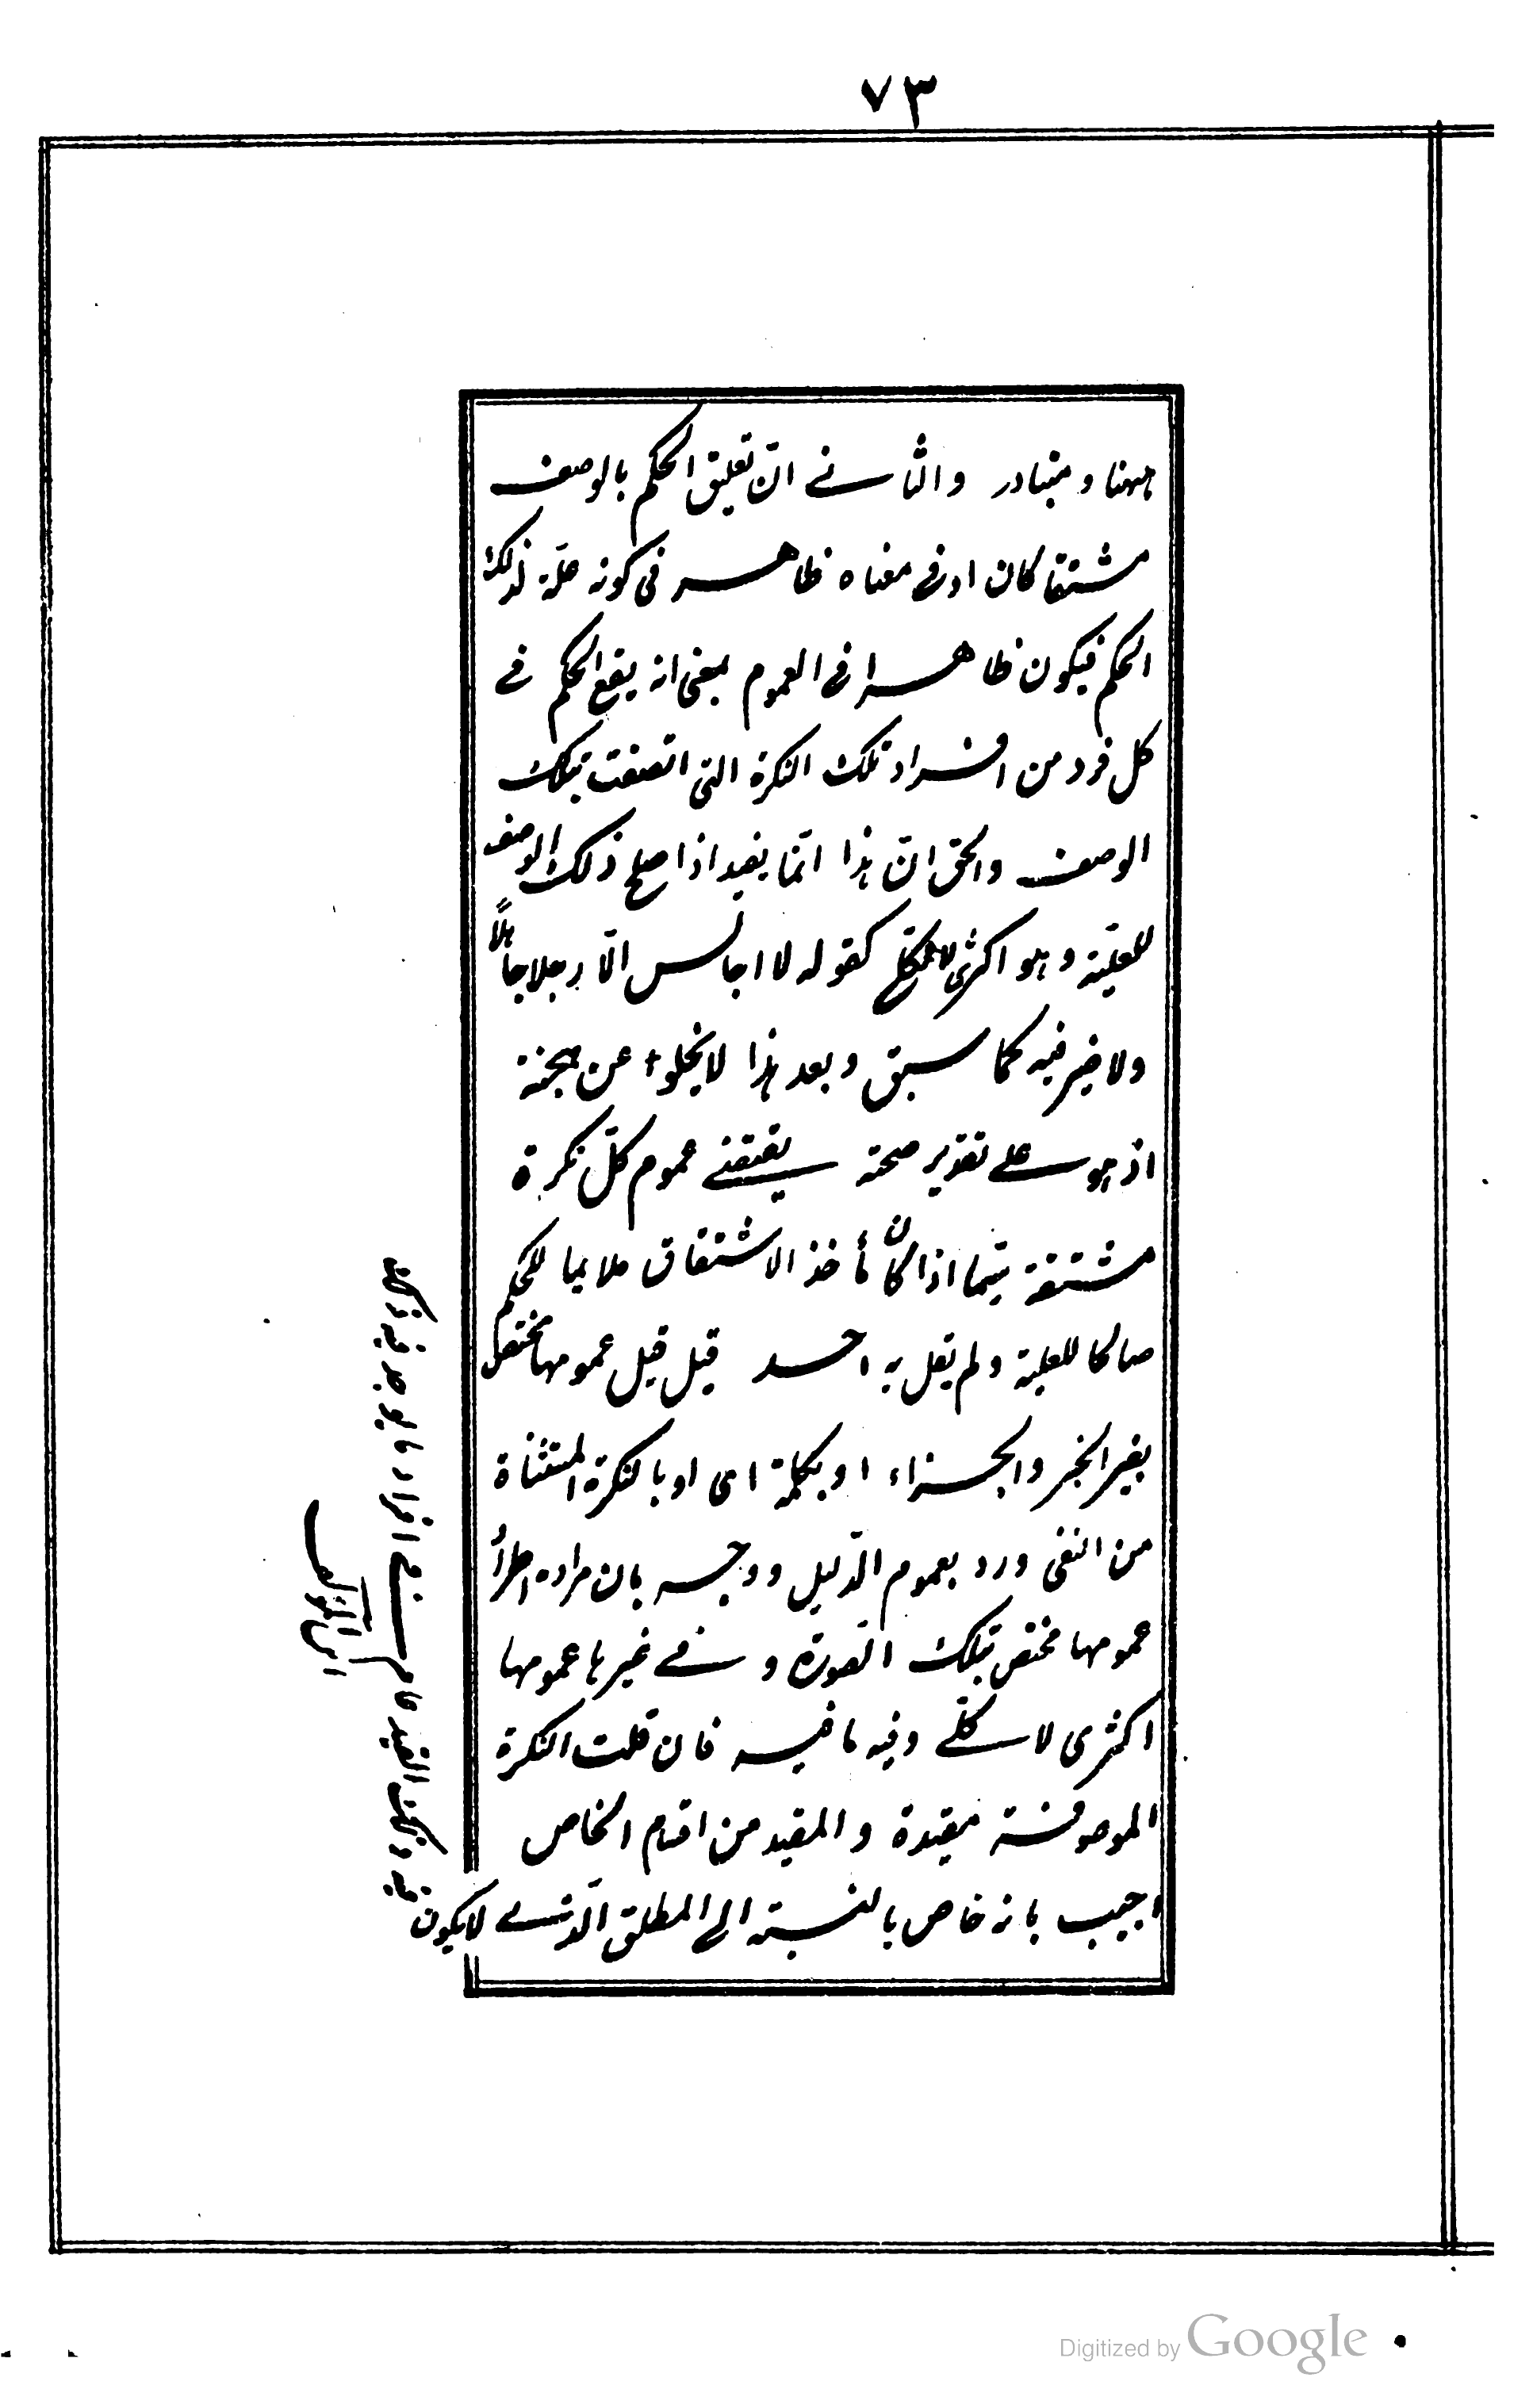 ٧٣
ههنا ومتبادر والثانے انّ تعليق الحكم بالوصف
مشتقا كان او فى معناه ظاهر فى كونه علّة لذلك
الحكم فيكون ظاهرا فى العموم بمعنى انه يقع الحكم فے
كل فرد من افراد تلك النكرة التى اتصفت بتلك
الوصف والحق انّ هذا انّما يفيد اذا صلح ذلك الوصف
للعليّة وهو اكثرى لا كلى كقوله لا اجالس الّا رجلا جاهلاً
ولا ضير فيه كما سبق وبعد هذا لا يخلو عن هجنة
اذ هو علے تقدير صحته يقتضے عموم كلّ نكرة
مشتقة سيّما اذا كان مأخذ الاشتقاق ملايما للحكم
صالحا للعلية ولم يقل به احد قيل قيل عمومها مختص
بغير الخبر والجزاء او بكلمة اى او بالنكرة المستثناة
من النفى ورد بعموم الدّليل ووجه بان مراده اطراد
عمومها مختص بتلك الصّورة وفے غيرها عمومها
اكثرى لا كلّے وفيه ما فيه فان قلت النكرة
الموصوفة مقيّدة والمقيد من اقسام الخاص
اجيب بانه خاص بالنسبة الى المطلق الّذے لا يكون
فيه ذلك القيد عام فے افراد ما يوجد فيه ذلك
Digitized by Google